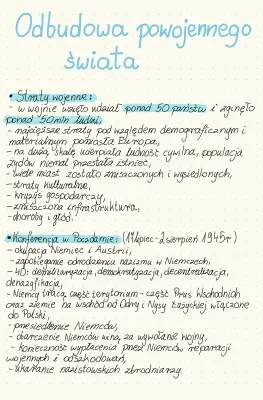 Odbudowa powojennego
świata
• Straty wojenne:
- w wojnie wzięło udział ponad 50 państw i zginęło
ponad 50 mln ludzi,
- największe straty pod względem demograficznym i
materialnym poniosła Europa,
- na dużą skalę ucierpiała ludność cywilna, populacja
Żydów niemal przestała istnieć,
- wiele miast zostało zniszczonych i wysiedlonych,
- straty kulturalne,
- kryzys gospodarczy,
- zniszczona infrastruktura,
- choroby i głód.
• Konferencja w Poczdamie: (17 lipiec - 2 sierpień 1945r)
- okupacja Niemiec i Austrii,
- zapobieganie odrodzeniu nazizmu w Niemczech,
- 4D: demilitaryzacja, demokratyzacja, decentralizacja,
denazyfikacja,
- Niemcy tracą część terytorium - część Prus Wschodnich
oraz ziemie na wschód od Odry i Nysy Łużyckiej włączone
do Polski,
- przesiedlenie Niemców,
- obarczenie Niemców winą za wywołanie wojny,
- konieczność wypłacenia przez Niemców reparacji
wojennych i odszkodowań,
- ukaranie nazistowskich zbrodniarzy.